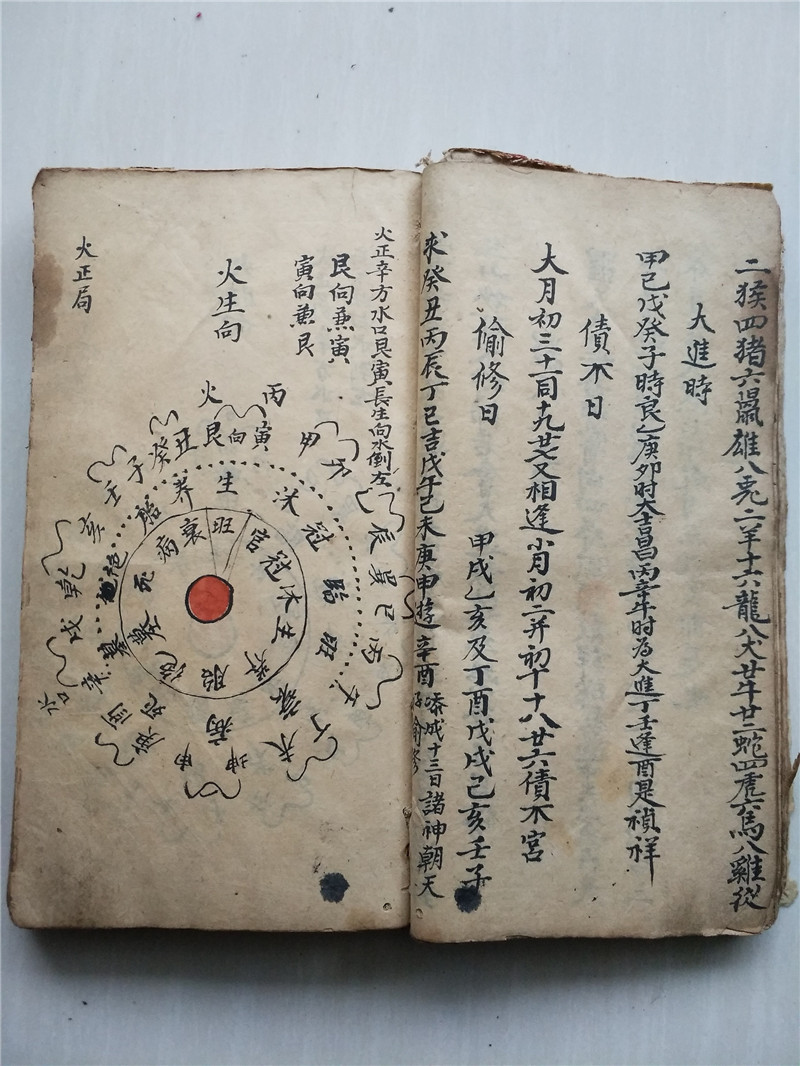 二猴四猪六鼠雄八兎二羊十六龍八犬廿牛廿二蛇四虎六馬八雞從
大進時
甲己戊癸子時良乙庚卯时大吉昌丙辛午时为大進丁壬逢酉是禎祥
債不日
大月初三十一同十九廿七又相逢小月初二并初十十八廿六債不宮
偷修日
甲戌乙亥及丁酉戊戌己亥壬子
求癸丑丙辰丁巳吉戊午己未庚申辛酉
十三日諸神朝天
火正辛方水口艮寅長生向水倒左
艮向兼寅
寅向兼艮
火生向
火正局
火 丙
艮向寅
甲
辰巽巳丙
丁未
坤申
乾戌
壬子癸丑
生沐冠臨旺
病
胎养
旺官冠沐生
胎
墓
死病衰